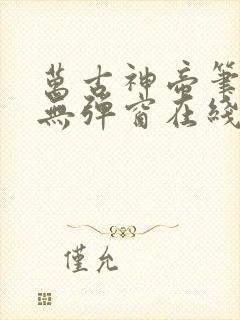 萬古神帝筆
無彈窗在綫
僅允